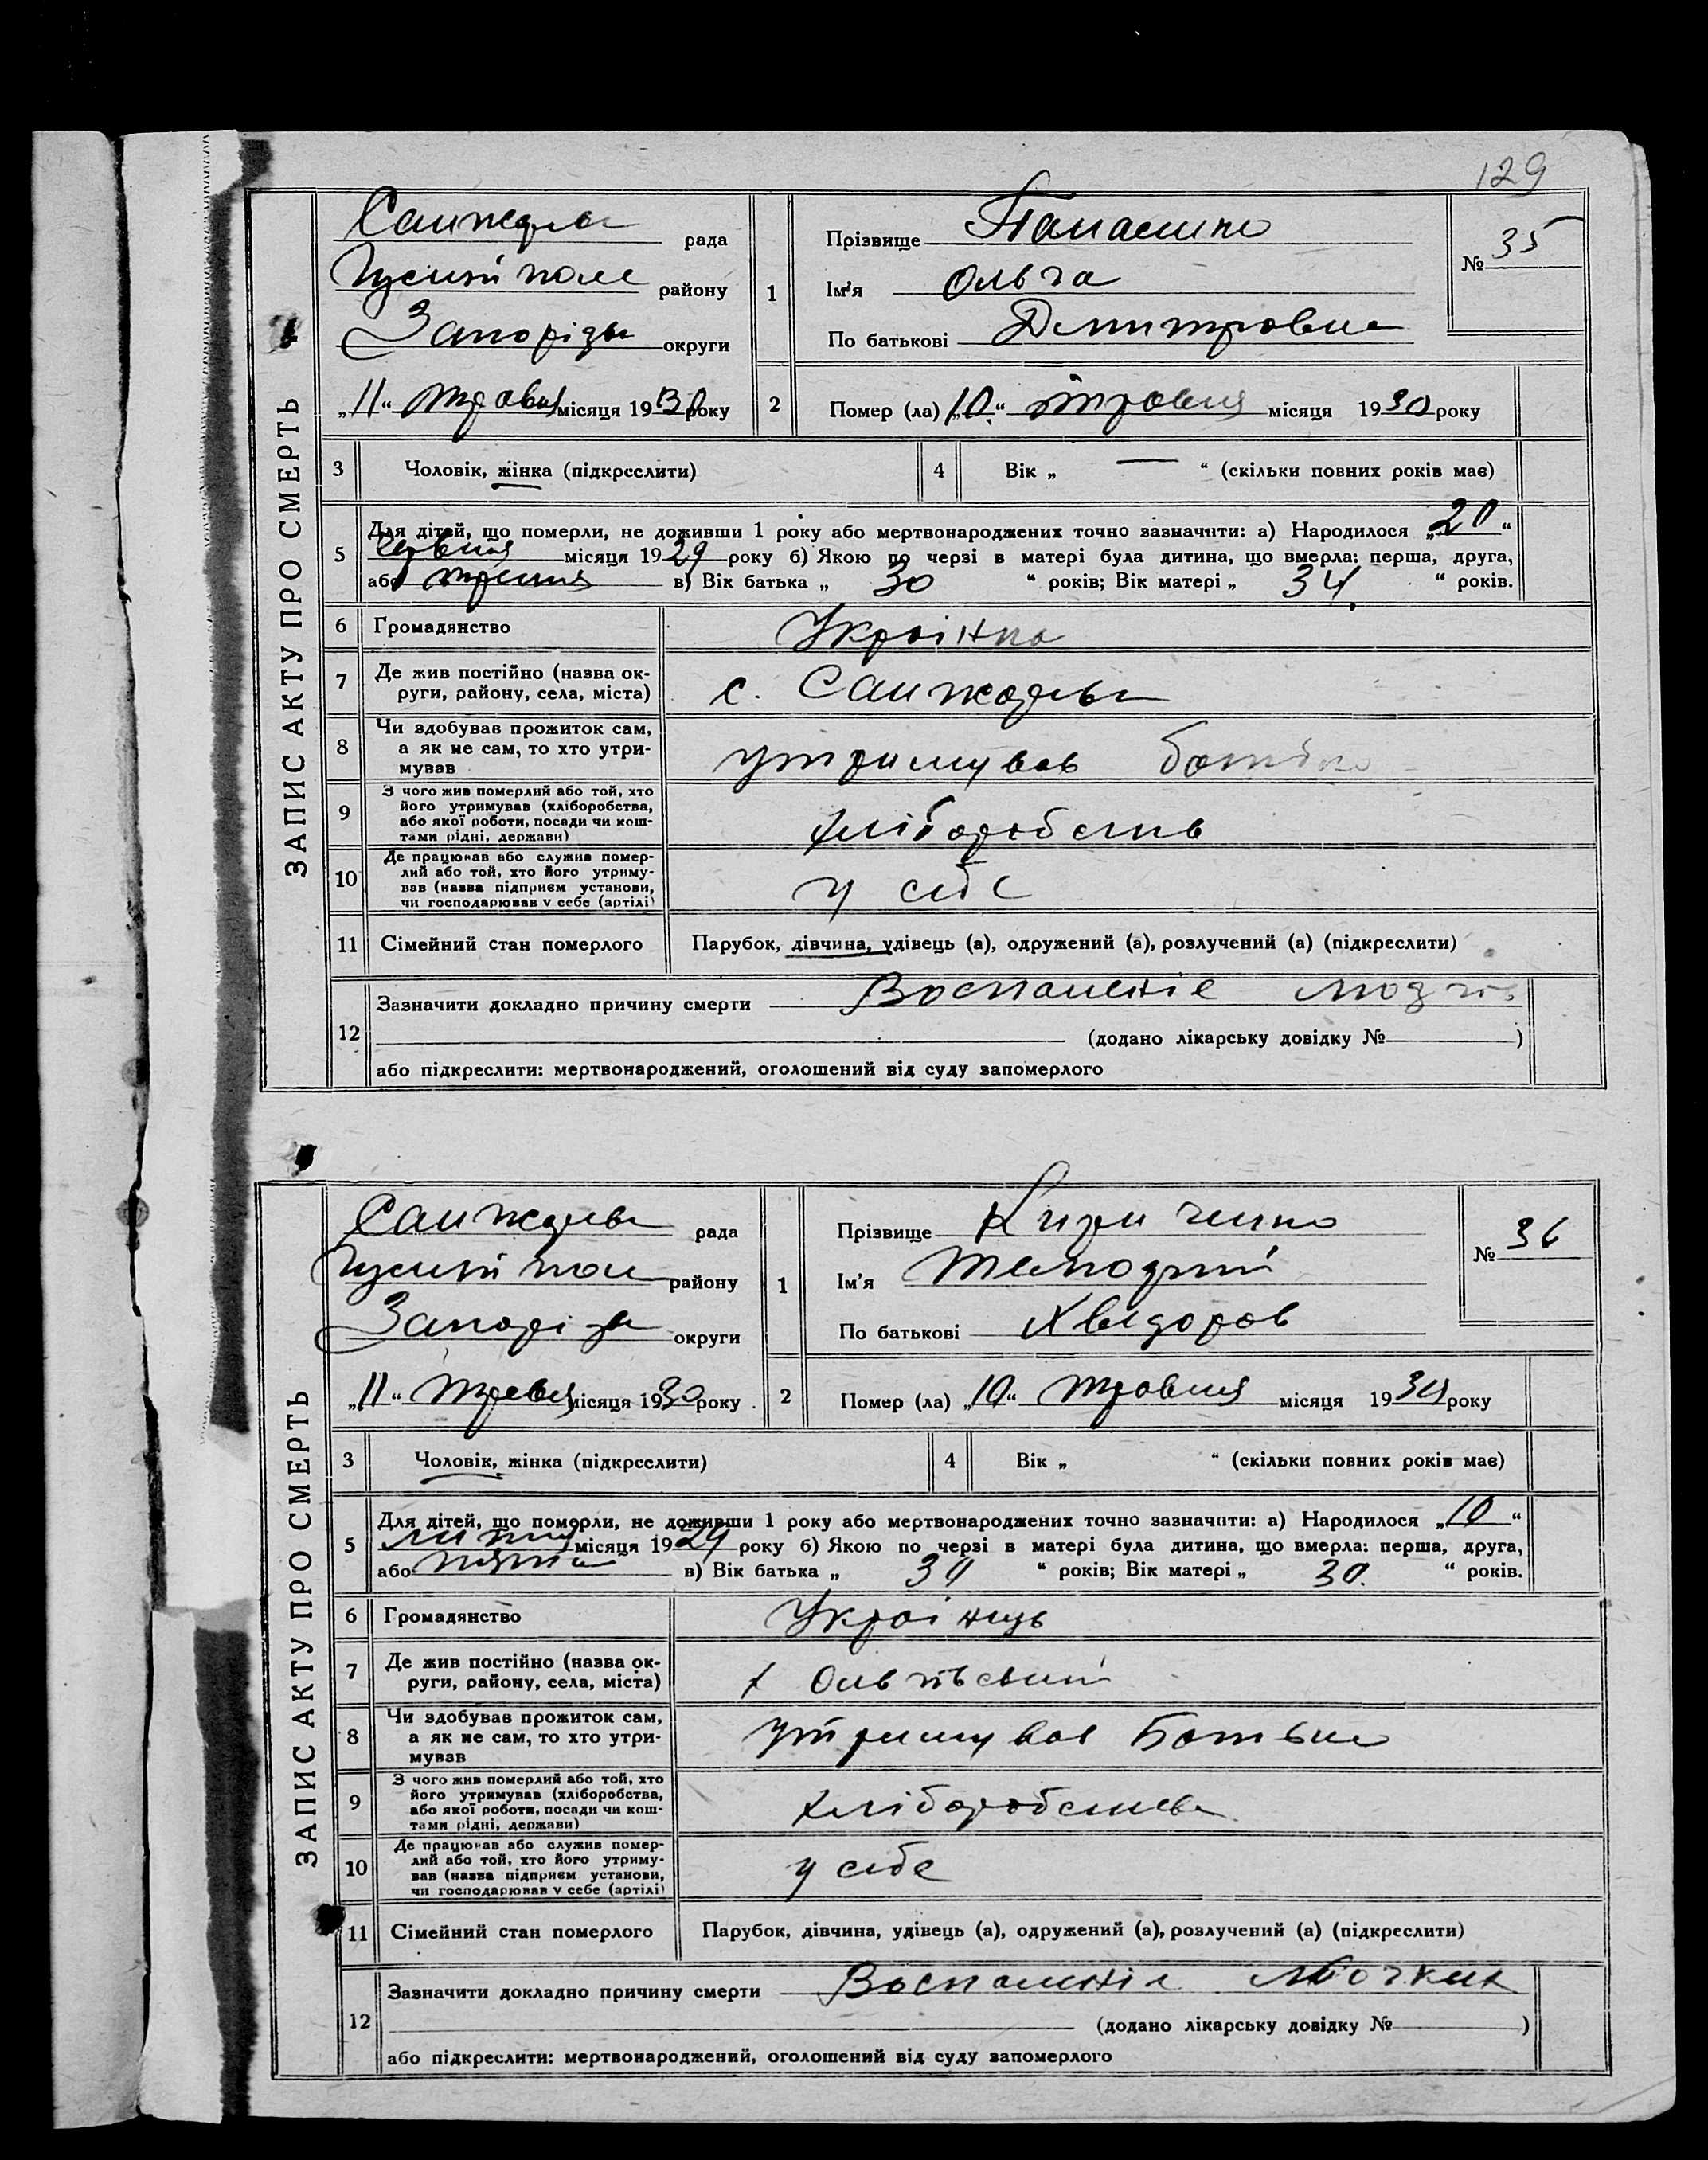 129
ЗАПИС АКТУ ПРО СМЕРТЬ
рада
району
округи
„11“ травня місяця 1930 року
1
Прізвище
Ім'я Ольга
По батькові Дмитровна
№ 35
2 Помер (ла) „10“ травня місяця 1930 року
3 Чоловік, жінка (підкреслити)
4 Вік „ — “ (скільки повних років має)
5 Для дітей, що померли, не доживши 1 року або мертвонароджених точно зазначити: а) Народилося „20“
червня місяця 1929 року б) Якою по черзі в матері була дитина, що вмерла: перша, друга,
або третя в) Вік батька „ 30 “ років; Вік матері „ “ років.
6 Громадянство Українка
7 Де жив постійно (назва ок-
руги, району, села, міста) с.
8 Чи здобував прожиток сам,
а як не сам, то хто утри-
мував
утримував батько
9 З чого жив померлий або той, хто
його утримував (хліборобства,
або якої роботи, посади чи кош-
тами рідні, держави)
10 Де працював або служив помер-
лий або той, хто його утриму-
вав (назва підприєм установи,
чи господарював у себе (артілі)
у себе
11 Сімейний стан померлого Парубок, дівчина, удівець (а), одружений (а), розлучений (а) (підкреслити)
12 Зазначити докладно причину смерти Воспаленіе
(додано лікарську довідку № )
або підкреслити: мертвонароджений, оголошений від суду запомерлого
ЗАПИС АКТУ ПРО СМЕРТЬ
рада
району
округи
„11“ травня місяця 1930 року
1
Прізвище Кириченко
Ім'я
По батькові Хведоров
№ 36
2 Помер (ла) „10“ травня місяця 1930 року
3 Чоловік, жінка (підкреслити)
4 Вік „ “ (скільки повних років має)
5 Для дітей, що померли, не доживши 1 року або мертвонароджених точно зазначити: а) Народилося „10“
липня місяця 1929 року б) Якою по черзі в матері була дитина, що вмерла: перша, друга,
або пята в) Вік батька „ “ років; Вік матері „ 30 “ років.
6 Громадянство Українець
7 Де жив постійно (назва ок-
руги, району, села, міста) х
8 Чи здобував прожиток сам,
а як не сам, то хто утри-
мував
утримував Батько
9 З чого жив померлий або той, хто
його утримував (хліборобства,
або якої роботи, посади чи кош-
тами рідні, держави)
10 Де працював або служив помер-
лий або той, хто його утриму-
вав (назва підприєм установи,
чи господарював у себе (артілі)
у себе
11 Сімейний стан померлого Парубок, дівчина, удівець (а), одружений (а), розлучений (а) (підкреслити)
12 Зазначити докладно причину смерти Воспаленіе
(додано лікарську довідку № )
або підкреслити: мертвонароджений, оголошений від суду запомерлого